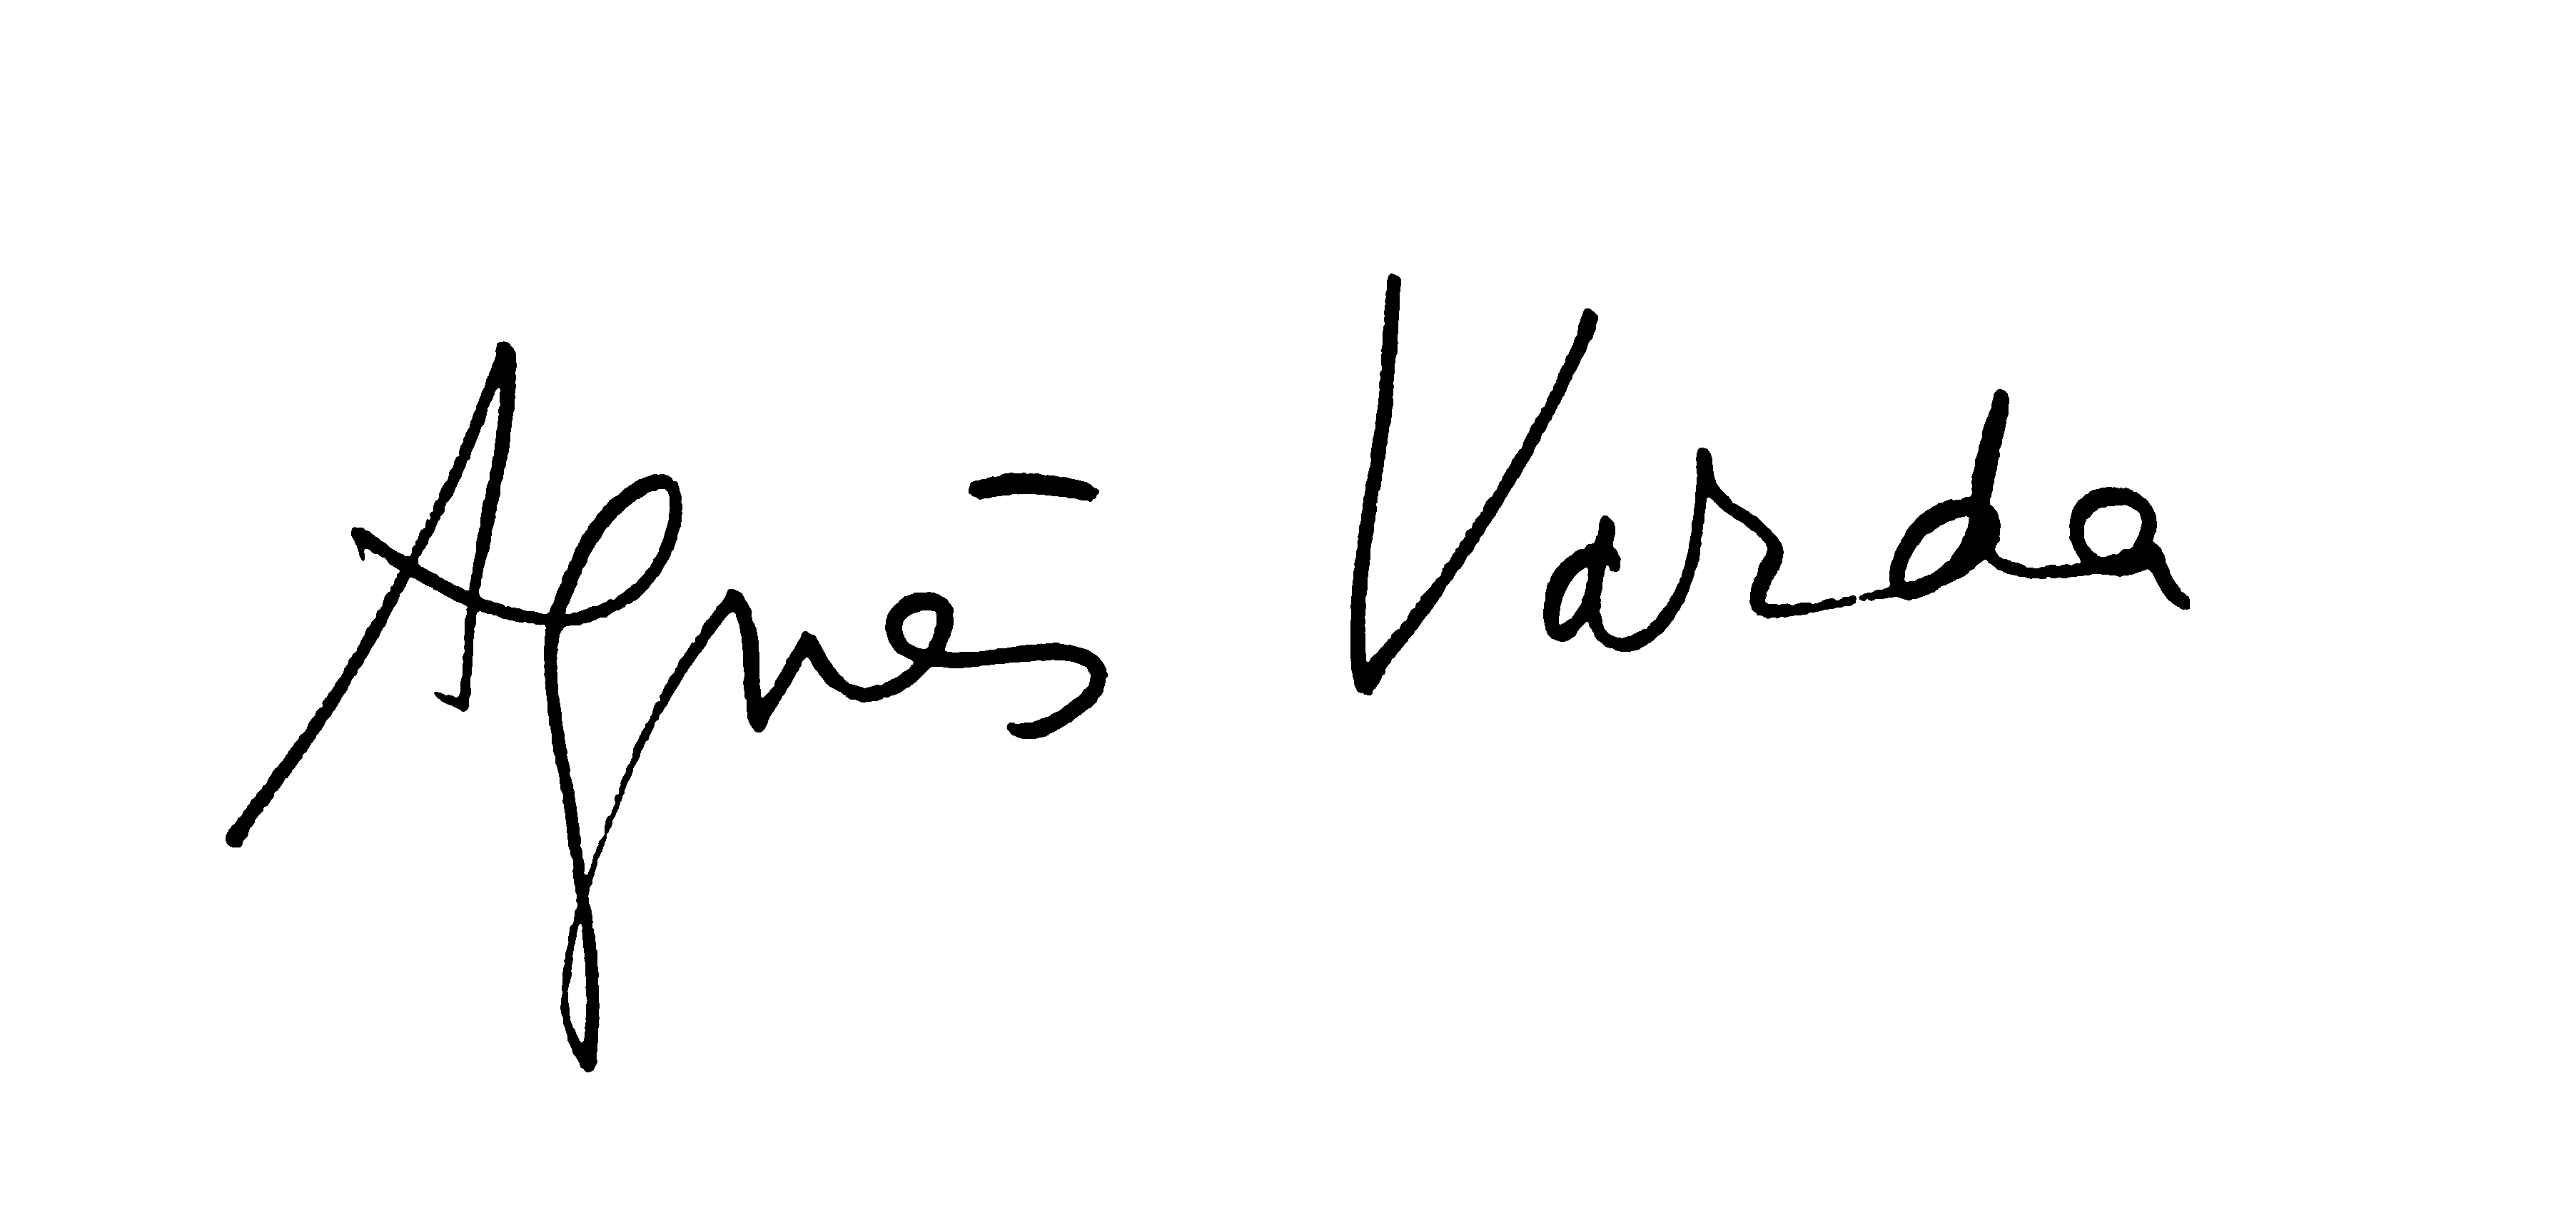 Agnès Varda